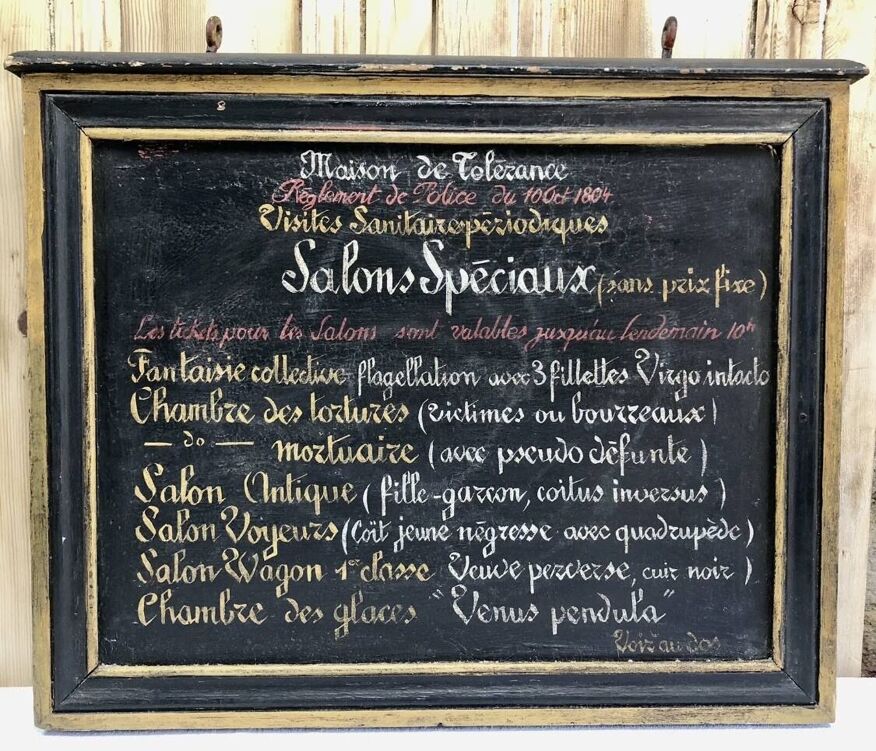 Maison de Tolérance
Règlement de Police du 10 Oct 1804
Visites Sanitaires périodiques
Salons Spéciaux (sans prix fixe)
Les tickets pour les Salons sont valables jusqu'au lendemain 10h
Fantaisie collective flagellation avec 3 fillettes Virgo intacta
Chambre des tortures (victimes ou bourreaux)
— do — mortuaire (avec pseudo défunte)
Salon Antique (fille-garçon, coïtus inversus)
Salon Voyeurs (Coït jeune négresse avec quadrupède)
Salon Wagon 1re classe Veuve perverse, cuir noir)
Chambre des glaces "Venus pendula"
Voir au dos